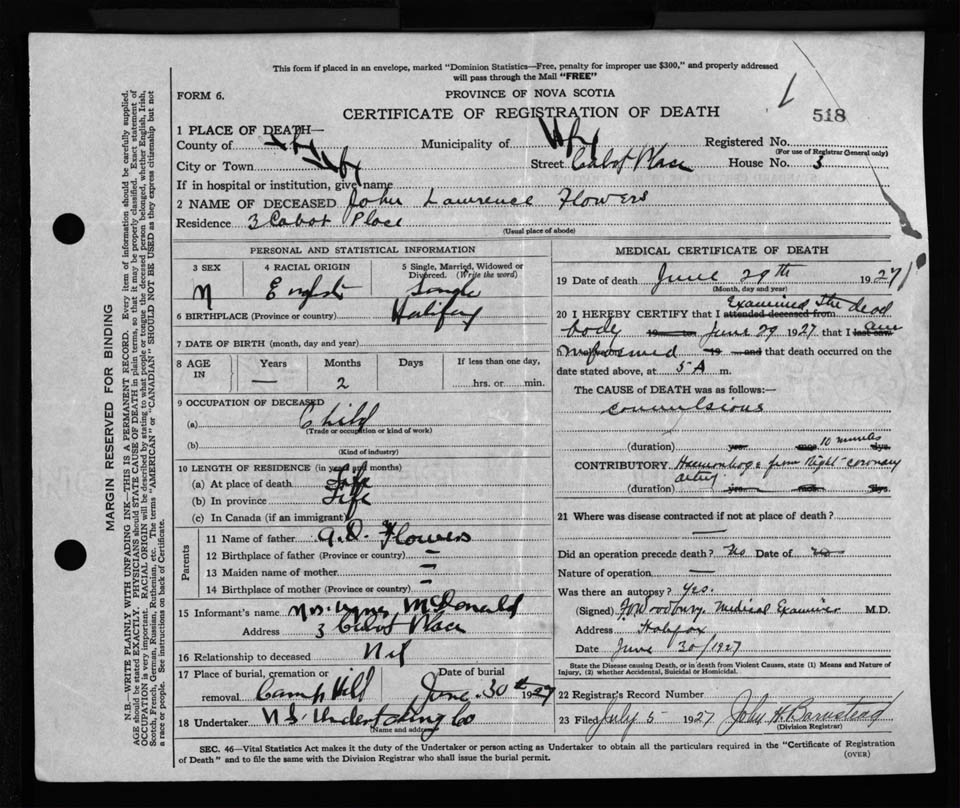 This form if placed in an envelope, marked "Dominion Statistics—Free, penalty for improper use $300," and properly addressed
will pass through the Mail "FREE"
FORM 6.
PROVINCE OF NOVA SCOTIA
CERTIFICATE OF REGISTRATION OF DEATH
518
1 PLACE OF DEATH—
County of Hfx Municipality of Hfx Registered No.
(For use of Registrar General only)
City or Town Hfx Street Cabot Place House No. 3
If in hospital or institution, give name
2 NAME OF DECEASED John Lawrence Flowers
Residence 3 Cabot Place
(Usual place of abode)
PERSONAL AND STATISTICAL INFORMATION
3 SEX 4 RACIAL ORIGIN 5 Single, Married, Widowed or
Divorced. (Write the word)
M English Single
6 BIRTHPLACE (Province or country) Halifax
7 DATE OF BIRTH (month, day and year)
8 AGE IN Years Months Days If less than one day,
— 2 hrs. or min.
9 OCCUPATION OF DECEASED
(a) Child
(Trade or occupation or kind of work)
(b)
(Kind of industry)
10 LENGTH OF RESIDENCE (in years and months)
(a) At place of death Life
(b) In province Life
(c) In Canada (if an immigrant)
Parents
11 Name of father A.D. Flowers
12 Birthplace of father (Province or country) —
13 Maiden name of mother —
14 Birthplace of mother (Province or country) —
15 Informant's name Mrs. Agnes McDonald
Address 3 Cabot Place
16 Relationship to deceased Nil
17 Place of burial, cremation or removal Camp Hill Date of burial June 30th 1927
18 Undertaker N.S. Undertaking Co
(Name and address)
MEDICAL CERTIFICATE OF DEATH
19 Date of death June 29th 1927
(Month, day and year)
20 I HEREBY CERTIFY that I attended deceased from Examined the dead
body 19 June 29 1927 that I last saw am
h informed 19 and that death occurred on the
date stated above, at 5 A m.
The CAUSE of DEATH was as follows:—
convulsions
(duration) yrs mos 10 minutes dys.
CONTRIBUTORY Haemorrhage from Right coronary
artery
(duration) yrs mos dys.
21 Where was disease contracted if not at place of death?
—
Did an operation precede death? No Date of no
Nature of operation —
Was there an autopsy? Yes.
(Signed) Woodbury. Medical Examiner M.D.
Address Halifax
Date June 30/1927
State the Disease causing Death, or in death from Violent Causes, state (1) Means and Nature of
Injury, (2) whether Accidental, Suicidal or Homicidal.
22 Registrar's Record Number
23 Filed July 5 1927 John H Barnstead
(Division Registrar)
SEC. 46—Vital Statistics Act makes it the duty of the Undertaker or person acting as Undertaker to obtain all the particulars required in the "Certificate of Registration
of Death" and to file the same with the Division Registrar who shall issue the burial permit.
(OVER)
MARGIN RESERVED FOR BINDING
N.B.—WRITE PLAINLY WITH UNFADING INK—THIS IS A PERMANENT RECORD. Every item of information should be carefully supplied.
AGE should be stated EXACTLY. PHYSICIANS should STATE CAUSE OF DEATH in plain terms, so that it may be properly classified. Exact statement of
OCCUPATION is very important. RACIAL ORIGIN will be described by stating to what people or tongue the deceased person belonged, whether English, Irish,
Scotch, French, German, Russian, Ruthenian, etc. The terms "AMERICAN" or "CANADIAN" SHOULD NOT BE USED as they express citizenship but not
a race or people. See instructions on back of Certificate.